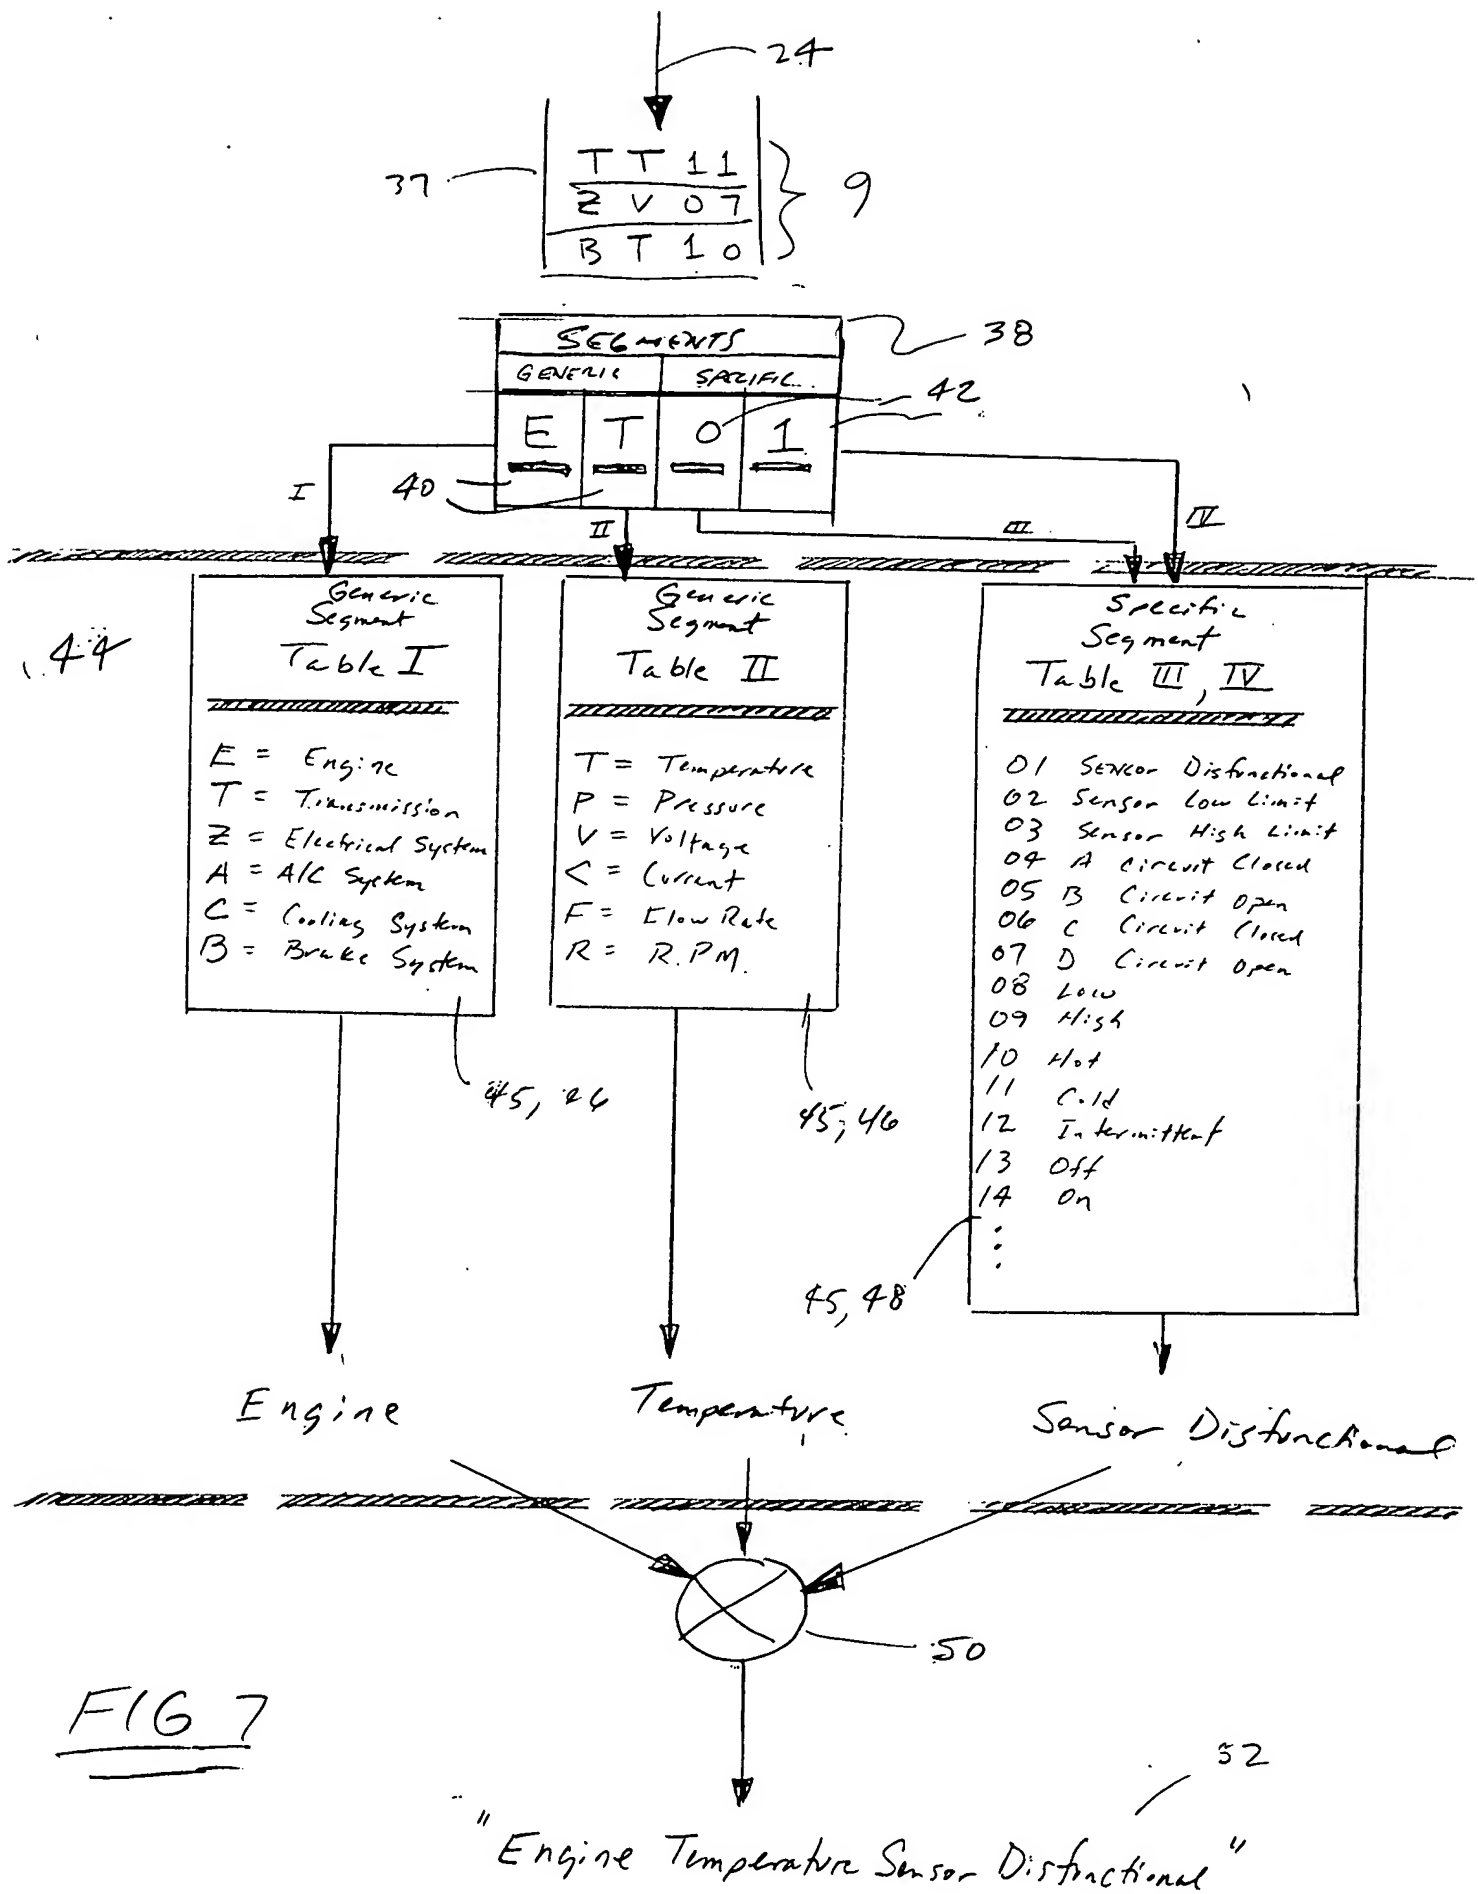 24
T T 1 1
37
Z V 0 7
9
B T 1 0
SEGMENTS
38
GENERIC
SPECIFIC
42
E T 0 1
I
40
II
III
IV
44
Generic
Segment
Table I
E = Engine
T = Transmission
Z = Electrical System
A = A/C System
C = Cooling System
B = Brake System
45, 46
Generic
Segment
Table II
T = Temperature
P = Pressure
V = Voltage
C = Current
F = Flow Rate
R = R.P.M.
45, 46
Specific
Segment
Table III, IV
01 Sensor Disfunctional
02 Sensor Low Limit
03 Sensor High Limit
04 A Circuit Closed
05 B Circuit Open
06 C Circuit Closed
07 D Circuit Open
08 Low
09 High
10 Hot
11 Cold
12 Intermittent
13 Off
14 On
45, 48
Engine
Temperature
Sensor Disfunctional
50
FIG 7
52
"Engine Temperature Sensor Disfunctional"